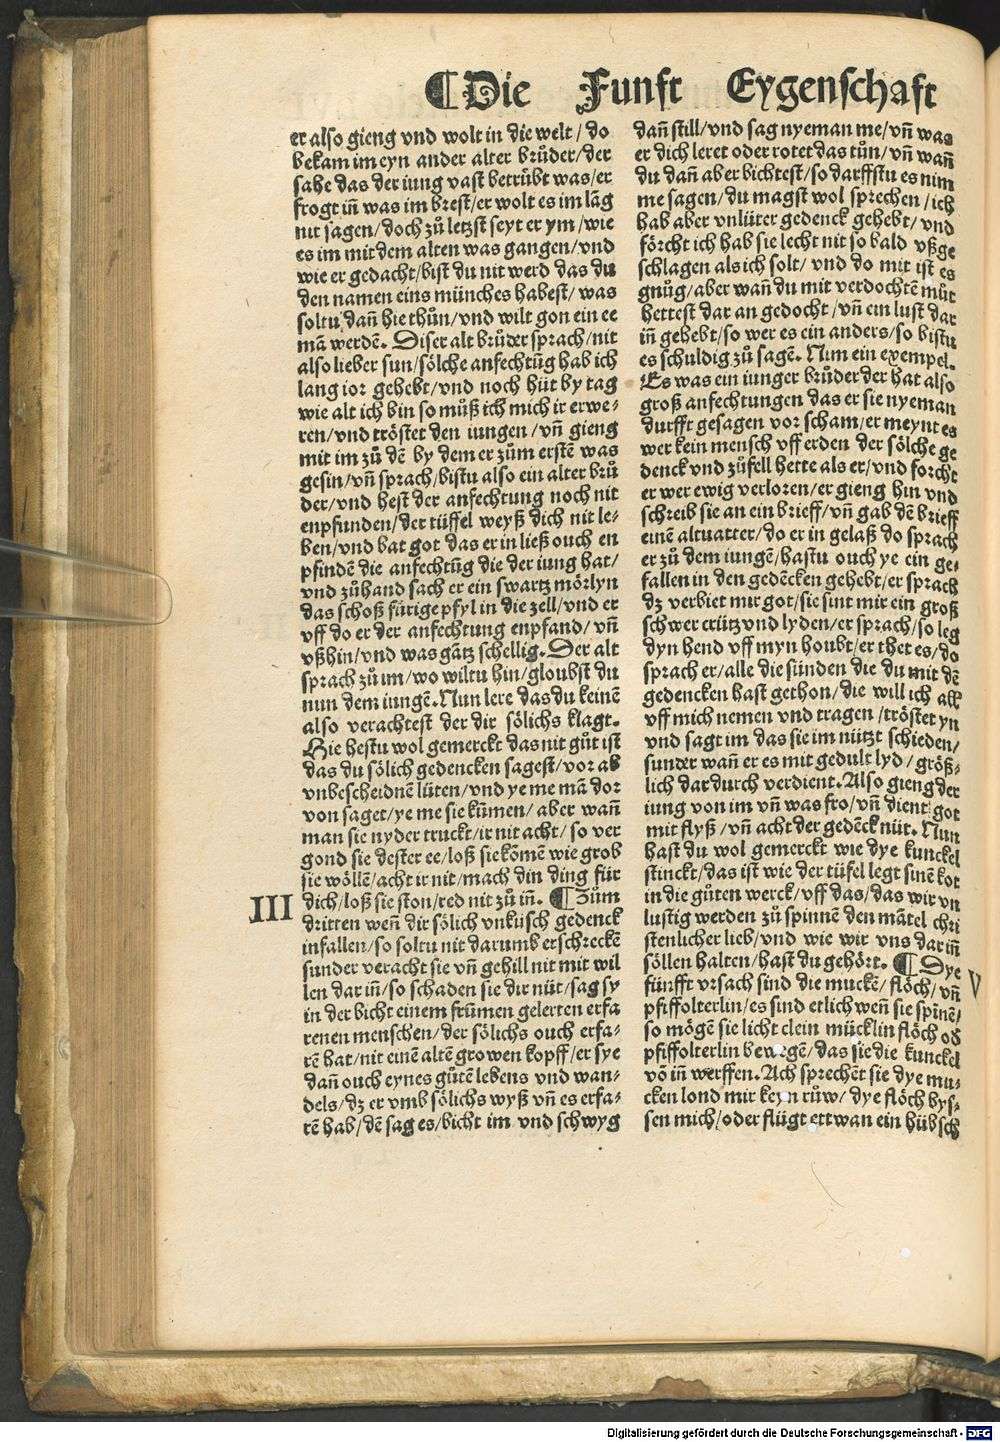 ¶Die Funft Eygenschaft
er also gieng vnd wolt in die welt / do
bekam im eyn ander alter brůder/der
sahe das der iung vast betrübt was/er
frogt iñ was im brest/er wolt es im lãg
nit sagen/doch zů letzst seyt er ym/wie
es im mit dem alten was gangen/vnd
wie er gedacht/bist du nit werd das du
den namen eins münches habest/ was
soltu dañ hie thůn/vnd wilt gon ein ee
mã werdẽ. Diser alt brůder sprach/nit
also lieber sun/sölche anfechtũg hab ich
lang ior gehebt/vnd noch hüt by tag
wie alt ich bin so můß ich mich ir erwe-
ren/vnd tröstet den iungen /vñ gieng
mit im zů dẽ by dem er zům erstẽ was
gesin/vñ sprach/bistu also ein alter brů
der/vnd hest der anfechtung noch nit
enpfunden/der tüffel weyß dich nit le-
ben/vnd bat got das er in ließ ouch en
pfindẽ die anfechtũg die der iung hat/
vnd zůhand sach er ein swartz mörlyn
das schoß fürige pfyl in die zell/vnd er
vff do er der anfechtung enpfand/ vñ
vßhin/vnd was gãtz schellig. Der alt
sprach zů im/wo wiltu hin/gloubst du
nun dem iungẽ. Nun lere das du keinẽ
also verachtest der dir sölichs klagt.
Hie hestu wol gemerckt das nit gůt ist
das du sölich gedencken sagest/vor ab
vnbescheidnẽ lüten/vnd ye me mã dor
von saget/ye me sie kũmen/ aber wañ
man sie nyder truckt/ir nit acht/ so ver
gond sie dester ee/loß sie kõmẽ wie grob
sie wöllẽ/acht ir nit/mach din ding für
dich/loß sie ston/red nit zů iñ. ¶Zům
III
dritten weñ dir sölich vnküsch gedenck
infallen/so soltu nit darumb erschreckẽ
sunder veracht sie vñ gehill nit mit wil
len dar iñ/so schaden sie dir nüt/sag sy
in der bicht einem frũmen gelerten erfa
renen menschen/der sölichs ouch erfa-
rẽ hat/nit einẽ altẽ growen kopff/er sye
dañ ouch eynes gůtẽ lebens vnd wan-
dels/dz er vmb sölichs wyß vñ es erfa-
rẽ hab/dẽ sag es/bicht im vnd schwyg
dañ still/vnd sag nyeman me/vñ was
er dich leret oder rotet das tůn/vñ wañ
du dañ aber bichtest/so darffstu es nim
me sagen/du magst wol sprechen /ich
hab aber vnlüter gedenck gehebt/vnd
förcht ich hab sie lecht nit so bald vßge
schlagen als ich solt/ vnd do mit ist es
gnůg/aber wañ du mit verdochtẽ můt
hettest dar an gedocht /vñ ein lust dar
iñ gehebt/so wer es ein anders/so bistu
es schuldig zů sagẽ. Nun ein exempel.
Es was ein iunger brůder der hat also
groß anfechtungen das er sie nyeman
durfft gesagen vor scham/er meynt es
wer kein mensch vff erden der sölche ge
denck vnd zůfell hette als er/vnd forcht
er wer ewig verloren/er gieng hin vnd
schreib sie an ein brieff/vñ gab dẽ brieff
einẽ altuatter/do er in gelaß do sprach
er zů dem iungẽ/hastu ouch ye ein ge-
fallen in den gedẽcken gehebt/er sprach
dz verbiet mir got/sie sint mir ein groß
schwer crütz vnd lyden/er sprach/so leg
dyn hend vff myn houbt/er thet es/do
sprach er/alle die sünden die du mit dẽ
gedencken hast gethon/die will ich all
vff mich nemen vnd tragen /tröstet yn
vnd sagt im das sie im nützt schieden/
sunder wañ er es mit gedult lyd/ größ-
lich dar durch verdient. Also gieng der
iung von im vñ was fro/vñ dient got
mit flyß /vñ acht der gedẽck nüt. Nun
hast du wol gemerckt wie dye kunckel
stinckt/das ist wie der tüfel legt sinẽ kot
in die gůten werck/vff das/das wir vn
lustig werden zů spinnẽ den mãtel chri
stenlicher lieb/vnd wie wir vns dar iñ
söllen halten/hast du gehört. ¶Dye
V
fünfft vrsach sind die muckẽ/ flöch/ vñ
pfiffolterlin/es sind etlich weñ sie spinẽ/
so mögẽ sie licht clein mücklin flöch od
pfiffolterlin bewegẽ/das sie die kunckel
võ iñ werffen. Ach sprechẽt sie dye mu-
cken lond mir keyn růw/ dye flöch bys-
sen mich/oder flügt ettwan ein hübsch
Digitalisierung gefördert durch die Deutsche Forschungsgemeinschaft - DFG